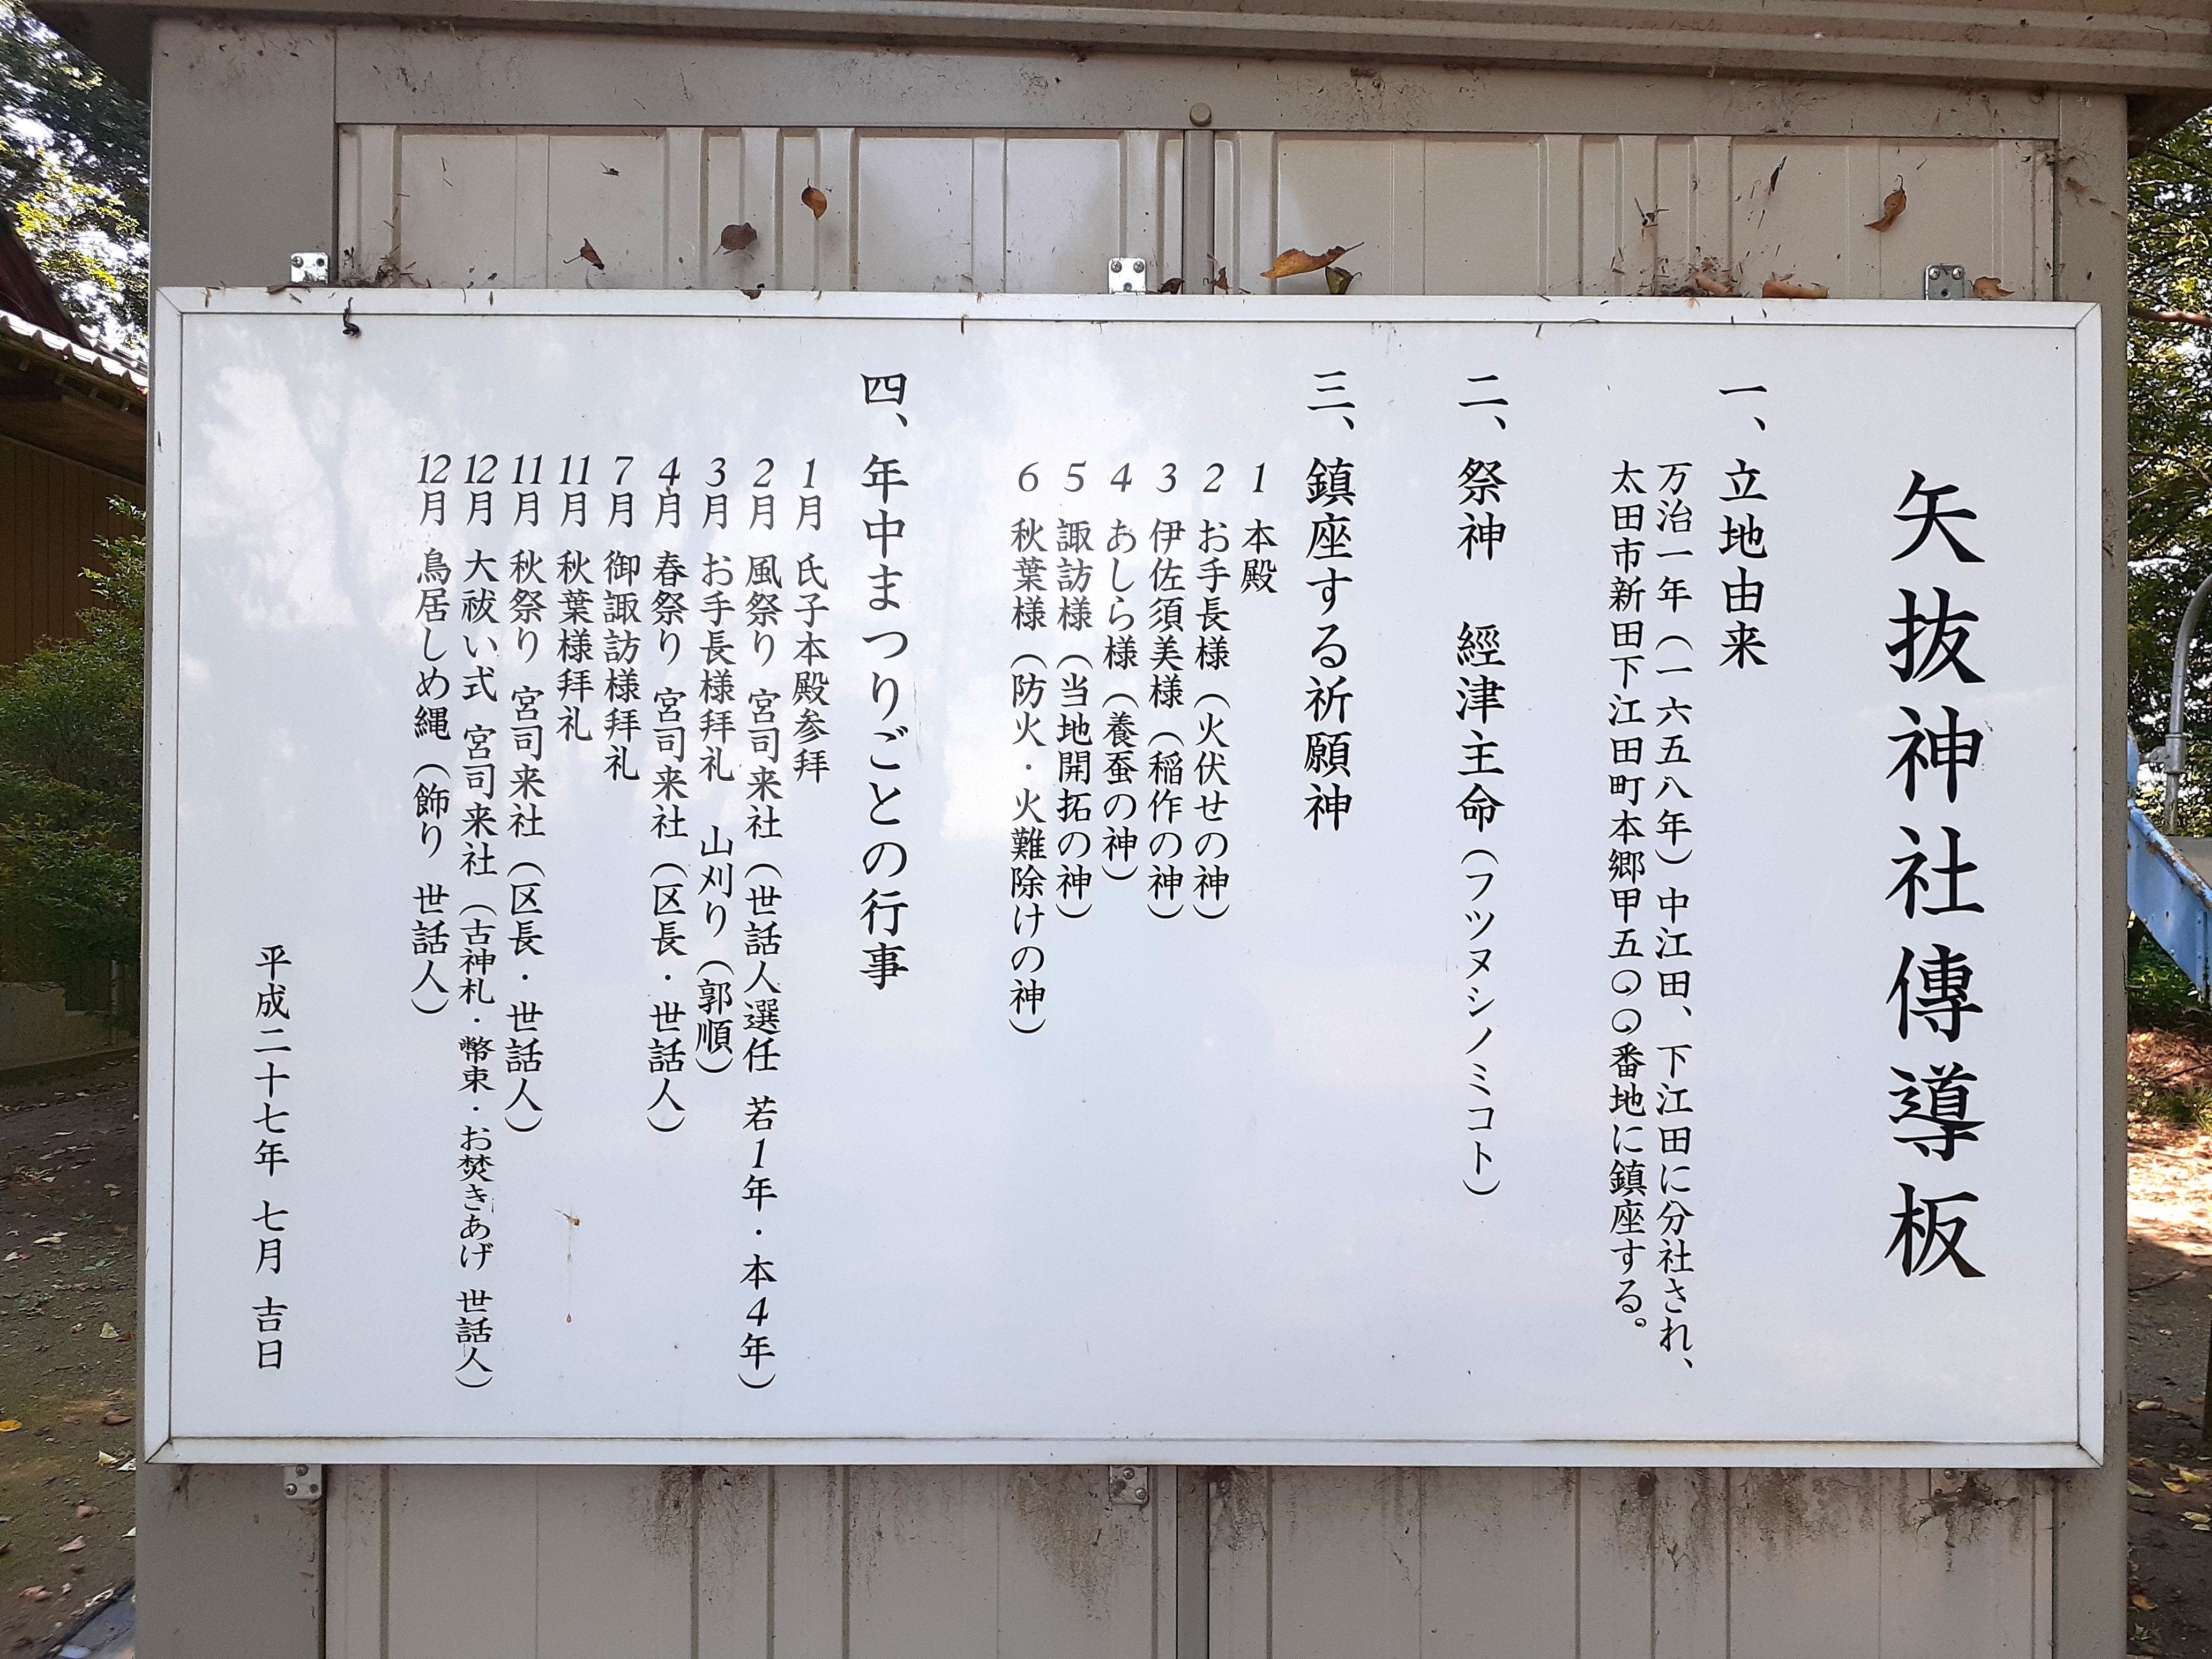 矢抜神社傳導板
一、立地由来
万治一年（一六五八年）中江田、下江田に分社され、
太田市新田下江田町本郷甲五〇〇番地に鎮座する。
二、祭神　經津主命（フツヌシノミコト）
三、鎮座する祈願神
1 本殿
2 お手長様（火伏せの神）
3 伊佐須美様（稲作の神）
4 あしら様（養蚕の神）
5 諏訪様（当地開拓の神）
6 秋葉様（防火・火難除けの神）
四、年中まつりごとの行事
1月 氏子本殿参拝
2月 風祭り 宮司来社（世話人選任 若1年・本4年）
3月 お手長様拝礼　山刈り（郭順）
4月 春祭り 宮司来社（区長・世話人）
7月 御諏訪様拝礼
11月 秋葉様拝礼
11月 秋祭り 宮司来社（区長・世話人）
12月 大祓い式 宮司来社（古神札・幣束・お焚きあげ 世話人）
12月 鳥居しめ縄（飾り 世話人）
平成二十七年 七月 吉日